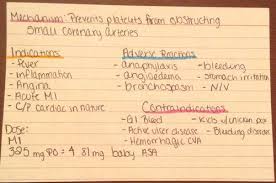 Mechanism: Prevents platelets from obstructing
small coronary arteries
Indications:
- Fever
- inflammation
- Angina
- Acute MI
- C/P cardiac in nature
Adverse Reactions
- anaphylaxis
- angioedema
- bronchospasm
- bleeding
- stomach irritation
- N/V
Contraindications
- GI Bleed
- Active ulcer disease
- Hemorrhagic CVA
- Kids c chicken pox
- Bleeding disease
Dose:
MI
325 mg PO = 4 81mg baby ASA